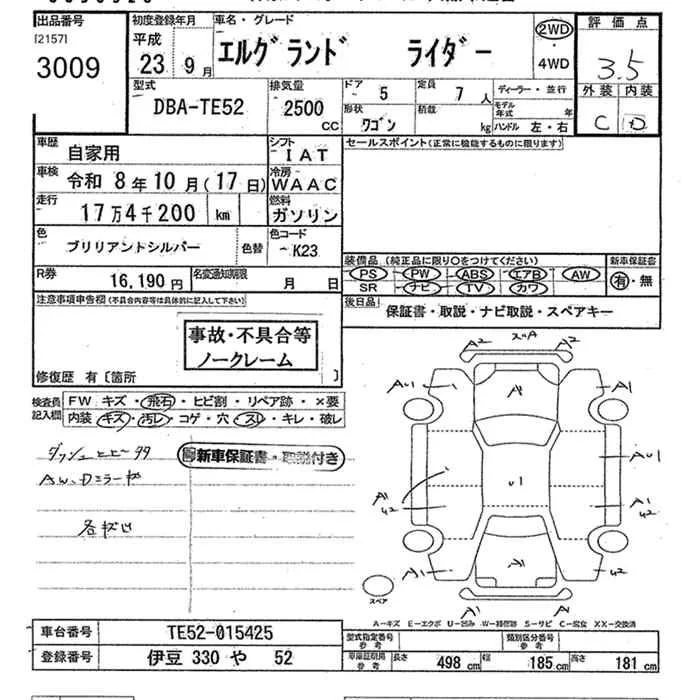 出品番号 初度登録年月 車名・グレード 評価点
[2157] 平成 2WD
3009 23年9月 エルグランド ライダー ・4WD 3.5
型式 排気量 ドア 5 定員 7人 ディーラー・並行 外装 内装
DBA-TE52 2500 CC 形状 ワゴン 積載 kg モデル年式 年 ハンドル 左・右 C D
車歴 自家用 シフト IAT セールスポイント(正常に機能するものに限ります)
車検 令和 8年10月(17日) 冷房 WAAC
走行 17万4千200 km 燃料 ガソリン
色 ブリリアントシルバー 色替 色コード K23
装備品(純正品に限り○をつけてください) 新車保証書
R券 16,190円 名変通知期限 月 日 PS PW ABS エアB AW 有・無
SR ナビ TV カワ
注意事項申告欄(不具合内容等は具体的に記入して下さい) 後日品 保証書・取説・ナビ取説・スペアキー
事故・不具合等
ノークレーム
修復歴 有〔箇所 〕
検査員記入欄 FW キズ・飛石・ヒビ割・リペア跡・×要
内装 キズ・汚レ・コゲ・穴・スレ・キレ・破レ
新車保証書・取説付き
A2 A2
AU1 A A1
AU1
A1 U2 U1 A1 U2
A1 A1 U2
スペア A1 A
A-キズ E-エクボ U-凹み W-補修跡 S-サビ C-腐食 XX-交換済
車台番号 TE52-015425 型式指定番号 参考 類別区分番号 参考
登録番号 伊豆 330 や 52 車庫証明用 参考 長さ 498 cm 幅 185 cm 高さ 181 cm